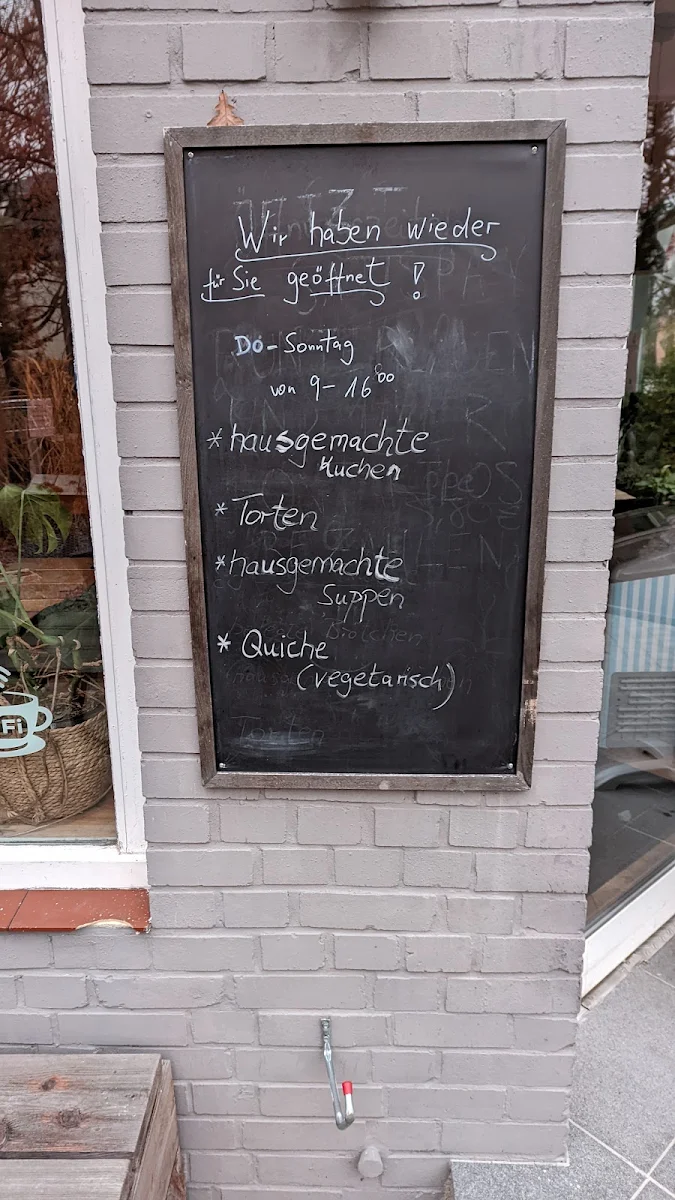 Wir haben wieder
für Sie geöffnet !
Do - Sonntag
von 9 - 16⁰⁰
* hausgemachte
Kuchen
* Torten
* hausgemachte
Suppen
* Quiche
(vegetarisch)
Torten
Fi